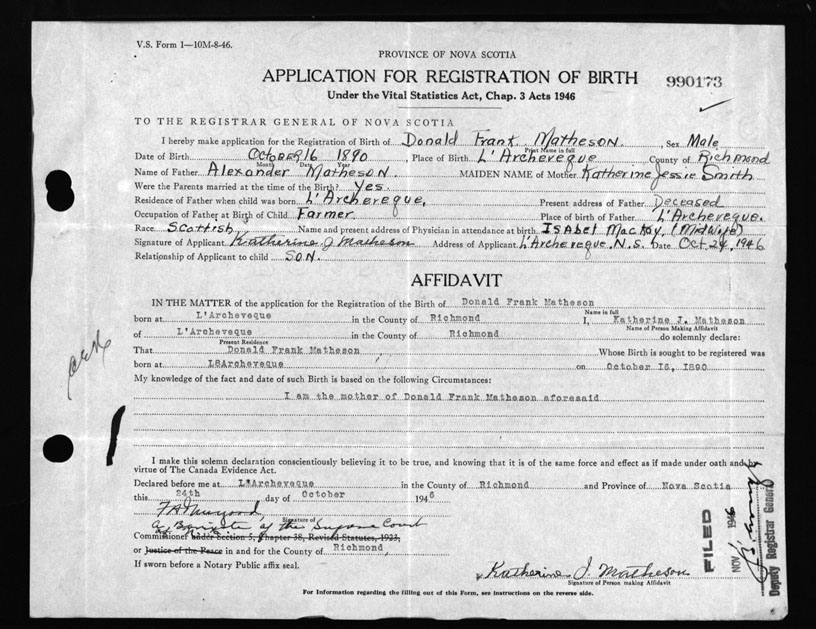 V.S. Form 1—10M-8-46.
PROVINCE OF NOVA SCOTIA
APPLICATION FOR REGISTRATION OF BIRTH
990173
Under the Vital Statistics Act, Chap. 3 Acts 1946
TO THE REGISTRAR GENERAL OF NOVA SCOTIA
I hereby make application for the Registration of Birth of Donald Frank Matheson Sex Male
Print Name in full
Date of Birth OctOBER 16 1890 , Place of Birth L'Archeveque County of Richmond
Month Date Year
Name of Father Alexander Matheson. MAIDEN NAME of Mother Katherine Jessie Smith
Were the Parents married at the time of the Birth? Yes.
Residence of Father when child was born L'Archeveque. Present address of Father Deceased
Occupation of Father at Birth of Child Farmer Place of birth of Father L'Archeveque.
Race Scottish Name and present address of Physician in attendance at birth ISAbel MacKay, (MidWife)
Signature of Applicant Katherine J Matheson Address of Applicant L'Archeveque. N.S. Date Oct. 24, 1946
Relationship of Applicant to child SON.
AFFIDAVIT
IN THE MATTER of the application for the Registration of the Birth of Donald Frank Matheson
Name in full
born at L'Archeveque in the County of Richmond I, Katherine J. Matheson
Name of Person Making Affidavit
of L'Archeveque in the County of Richmond do solemnly declare:
Present Residence
That Donald Frank Matheson Whose Birth is sought to be registered was
born at L8Archeveque on October 16, 1890
My knowledge of the fact and date of such Birth is based on the following Circumstances:
I am the mother of Donald Frank Matheson aforesaid
I make this solemn declaration conscientiously believing it to be true, and knowing that it is of the same force and effect as if made under oath and by
virtue of The Canada Evidence Act.
Declared before me at L'Archeveque in the County of Richmond and Province of Nova Scotia
this 24th day of October 1946
Signature of
A Barrister of the Supreme Court
Commissioner under Section 5, Chapter 38, Revised Statutes, 1923,
or Justice of the Peace in and for the County of Richmond
If sworn before a Notary Public affix seal.
Katherine J. Matheson
Signature of Person making Affidavit
For Information regarding the filling out of this Form, see instructions on the reverse side.
FILED
NOV 1946
Deputy Registrar General